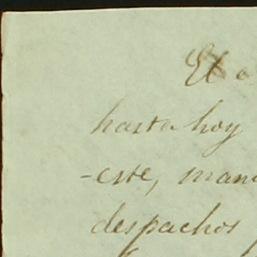 El a
hasta hoy
-este, man
despachos